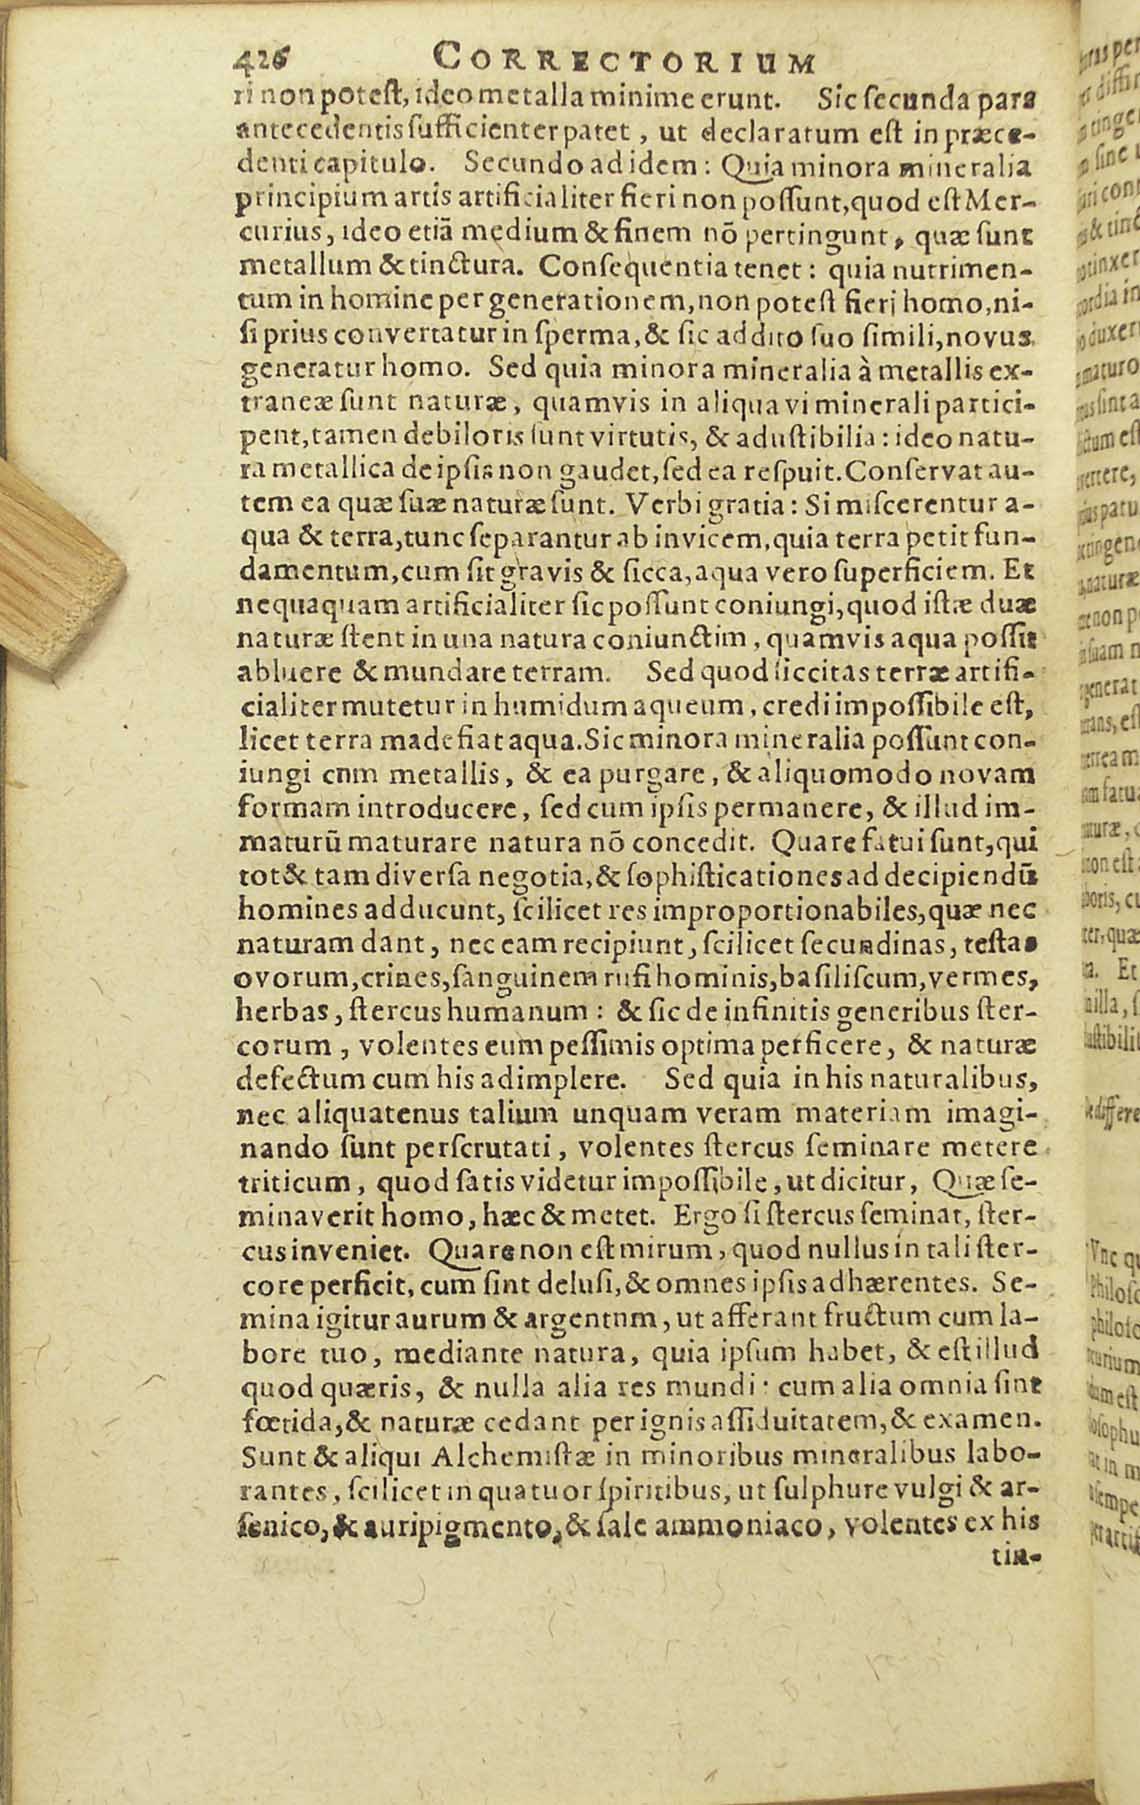 426 CORRECTORIUM
ri non potest, ideo metalla minime erunt. Sic secunda pars
antecedentis sufficienter patet, ut declaratum est in præce-
denti capitulo. Secundo ad idem: Quia minora mineralia
principium artis artificialiter fieri non possunt, quod est Mer-
curius, ideo etiā medium & finem nō pertingunt, quæ sunt
metallum & tinctura. Consequentia tenet: quia nutrimen-
tum in homine per generationem, non potest fieri homo, ni-
si prius convertatur in sperma, & sic addito suo simili, novus
generatur homo. Sed quia minora mineralia à metallis ex-
traneæ sunt naturæ, quamvis in aliqua vi minerali partici-
pent, tamen debiloris sunt virtutis, & adustibilia: ideo natu-
ra metallica de ipsis non gaudet, sed ea respuit. Conservat au-
tem ea quæ suæ naturæ sunt. Verbi gratia: Si miscerentur a-
qua & terra, tunc separantur ab invicem, quia terra petit fun-
damentum, cum sit gravis & sicca, aqua vero superficiem. Et
nequaquam artificialiter sic possunt coniungi, quod istæ duæ
naturæ stent in una natura coniunctim, quamvis aqua possit
abluere & mundare terram. Sed quod siccitas terræ artifi-
cialiter mutetur in humidum aqueum, credi impossibile est,
licet terra madefiat aqua. Sic minora mineralia possunt con-
iungi cnm metallis, & ea purgare, & aliquomodo novam
formam introducere, sed cum ipsis permanere, & illud im-
maturū maturare natura nō concedit. Quare fatui sunt, qui
tot & tam diversa negotia, & sophisticationes ad decipiendū
homines adducunt, scilicet res improportionabiles, quæ nec
naturam dant, nec eam recipiunt, scilicet secundinas, testas
ovorum, crines, sanguinem rufi hominis, basiliscum, vermes,
herbas, stercus humanum: & sic de infinitis generibus ster-
corum, volentes eum pessimis optima perficere, & naturæ
defectum cum his adimplere. Sed quia in his naturalibus,
nec aliquatenus talium unquam veram materiam imagi-
nando sunt perscrutati, volentes stercus seminare metere
triticum, quod satis videtur impossibile, ut dicitur, Quæ se-
minaverit homo, hæc & metet. Ergo si stercus seminat, ster-
cus inveniet. Quare non est mirum, quod nullus in tali ster-
core perficit, cum sint delusi, & omnes ipsis adhærentes. Se-
mina igitur aurum & argentnm, ut afferant fructum cum la-
bore tuo, mediante natura, quia ipsum habet, & est illud
quod quæris, & nulla alia res mundi: cum alia omnia sint
fœtida, & naturæ cedant per ignis assiduitatem, & examen.
Sunt & aliqui Alchemistæ in minoribus mineralibus labo-
rantes, scilicet in quatuor spiritibus, ut sulphure vulgi & ar-
senico, & auripigmento, & sale ammoniaco, volentes ex his
tin-